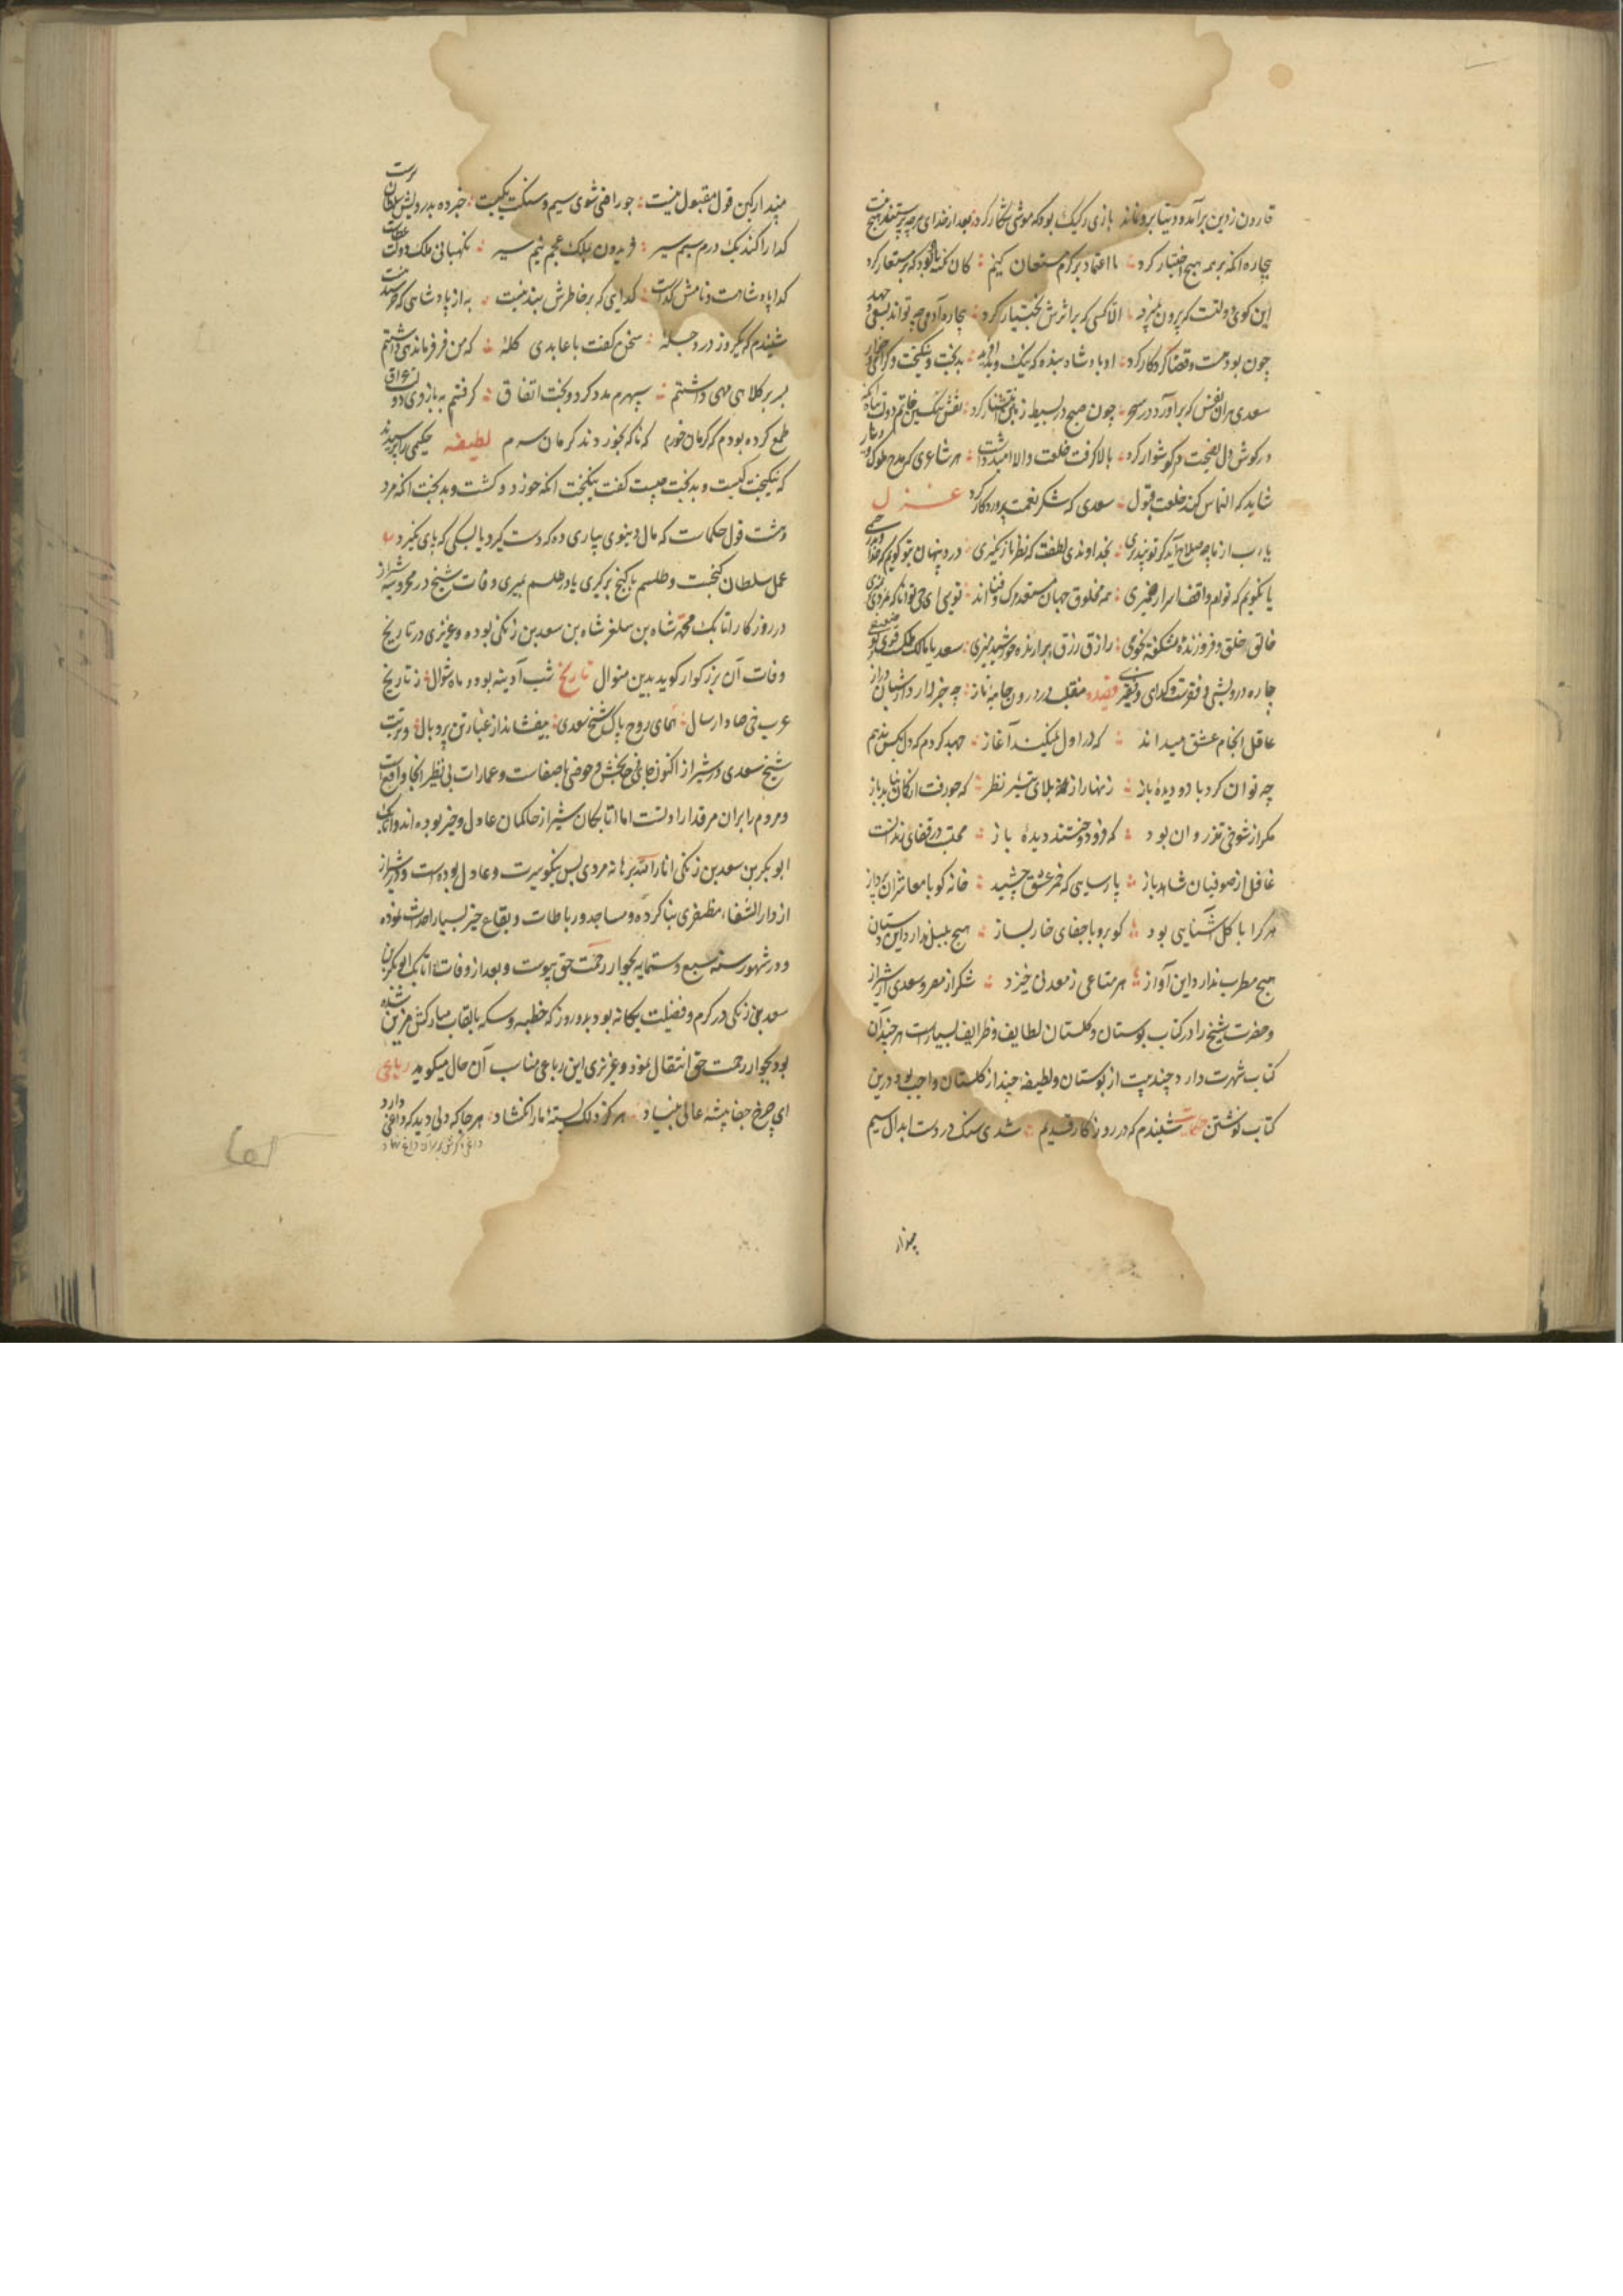 قارون ز دین برآمد و دنیا برو نماند بازی رکیک بود که موشی شکار کرد بعد از خدای هرچه پرستند هیچ نیست
بیچاره آنکه بر همه هیچ اختیار کرد ما اعتماد بر کرم مستعان کنیم کان تکیه باد بود که بر مستعار کرد
این کوی دولتست که بیرون نمیرود الا کسی که برانرش بخت یار کرد بیچاره آدمی چه تواند بسعی و جهد
چون بودنیست و قضا کردکار کرد او پادشاه بنده که نیک و بد آفرید بدبخت و نیکبخت و کرامی و خوار
سعدی هر آن نفس که برآورد در سحر چون صبح در بسیط زمین انتشار کرد نقش نکین خاتم دولت بنام آنکه
در کوش دل نصیحت او کوشوار کرد بالا کرفت خلعت والا امید داشت هر شاعری که مدح ملوک دیار
شاید که التماس کند خلعت قبول سعدی که شکر نعمت پروردکار کرد غزل
یا رب از ما چه صلاح آید کر تو نپذیری بخداوندی لطفت که نظر بازنکیری درد پنهان بتو کویم که خداوند
یا نکویم که تو هم واقف اسرار ضمیری همه مخلوق جهان مستعد مرک و فنااند
خالق خلق و فروزنده رازق رزق برآرنده خورشید منیری سعدیا
چاره درویشی و فقرست و کدای و فقیری قصیده متقلب درون جامه ناز چه خبر دارد از شبان دراز
عاقل انجام عشق میداند که در اول نمیکند آغاز جهد کردم که دل بکس ندهم
چه توان کرد با دو دیده باز زینهار از بلای تیر نظر که چو رفت از کمان نیاید باز
مکر از شوخی تذروان بود که فرو دوختند دیده باز محتسب در قفای رندانست
غافل از صوفیان شاهدباز پارسایی که خمر عشق چشید خانه کو با معاشران پرداز
هرکرا با کل آشنایی بود کو برو با جفای خار بساز هیچ بلبل ندارد این دستان
هیچ مطرب ندارد این آواز هر متاعی ز معدنی خیزد شکر از مصر و سعدی از شیراز
و حضرت شیخ را در کتاب بوستان و کلستان لطایف و ظرایف بسیارست هرچند آن
کتاب شهرت دارد چند بیت از بوستان و لطیفه چند از کلستان واجب بود درین
کتاب نوشتن حکایت شنیدم که در روزکار قدیم شدی سنک در دست ابدال سیم
مپندار
مپندار کین قول مقبول نیست چو راضی شوی سیم و سنکت یکیست خبر ده بدرویش سلطان پرست
کدا را کند یک درم سیم سیر فریدون بملک عجم نیم سیر نکهبانی ملک و دولت بلاست
کدا پادشاهست و نامش کداست کدایی که بر خاطرش بند نیست به از پادشاهی که خرسند نیست
شنیدم که یکروز در دجله سخن کفت با عابدی کله که من فر فرماندهی داشتم
بسر بر کلاه مهی داشتم سپهرم مدد کرد و بخت اتفاق کرفتم ببازوی دولت عراق
طمع کرده بودم که کرمان خورم که ناکه بخوردند کرمان سرم لطیفه حکیمی را پرسیدند
که نیکبخت کیست و بدبخت چیست کفت نیکبخت آنکه خورد و کشت و بدبخت آنکه مرد
و هشت قول حکماست که مال دنیوی بیاری ده که دست کیرد یا بسکی که پای نکیرد
عمل سلطان کنجست و طلسم یا کنج برکیری یا در طلسم بمیری وفات شیخ در محروسه شیراز
در روزکار اتابک محمد شاه بن سلغر شاه بن سعد بن زنکی بوده و عزیزی در تاریخ
وفات آن بزرکوار کوید بدین منوال تاریخ شب آدینه بود و ماه شوال ز تاریخ
عرب خی صاد و ا سال همای روح پاک شیخ سعدی بیفشاند از غبار تن پر و بال و تربت
شیخ سعدی در شیراز اکنون جای جانبخش و حوضی باصفاست و عمارات بی نظیر آنجا واقعست
و مردم را بران مرقد ارادتست اما اتابکان شیراز حاکمان عادل و خیر بوده اند و اتابک
ابوبکر بن سعد بن زنکی انار الله برهانه مردی بس نیکوسیرت و عادل بوده است و در شیراز
از دارالشفاء مظفری بنا کرده و مساجد و رباطات و بقاع خیر بسیار احداث نموده
و در شهور سنه سبع و ستمایه بجوار رحمت حق پیوست و بعد از وفات اتابک ابوبکر بن
سعد بن زنکی در کرم و فضیلت یکانه بود بدو روز که خطبه و سکه بالقاب مبارکش مزین شده
بود بجوار رحمت حق انتقال نمود و عزیزی این رباعی مناسب آن حال میکوید رباعی
ای چرخ جفاپیشه عالی بنیاد هرکز کره بسته ما را نکشاد هر جا که دلی دید که داغی دارد
داغی دکرش بر سر آن داغ نهاد